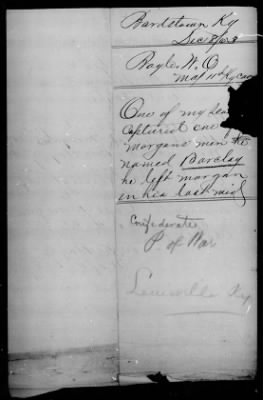 Bardstown Ky
Dec 8/63
Boyle, W. O
Maj 11th Ky Cav
One of my
captured one of
morgans men
named Barclay
he left morgan
on his last raid
Confederate
P. of War
Louisville Ky